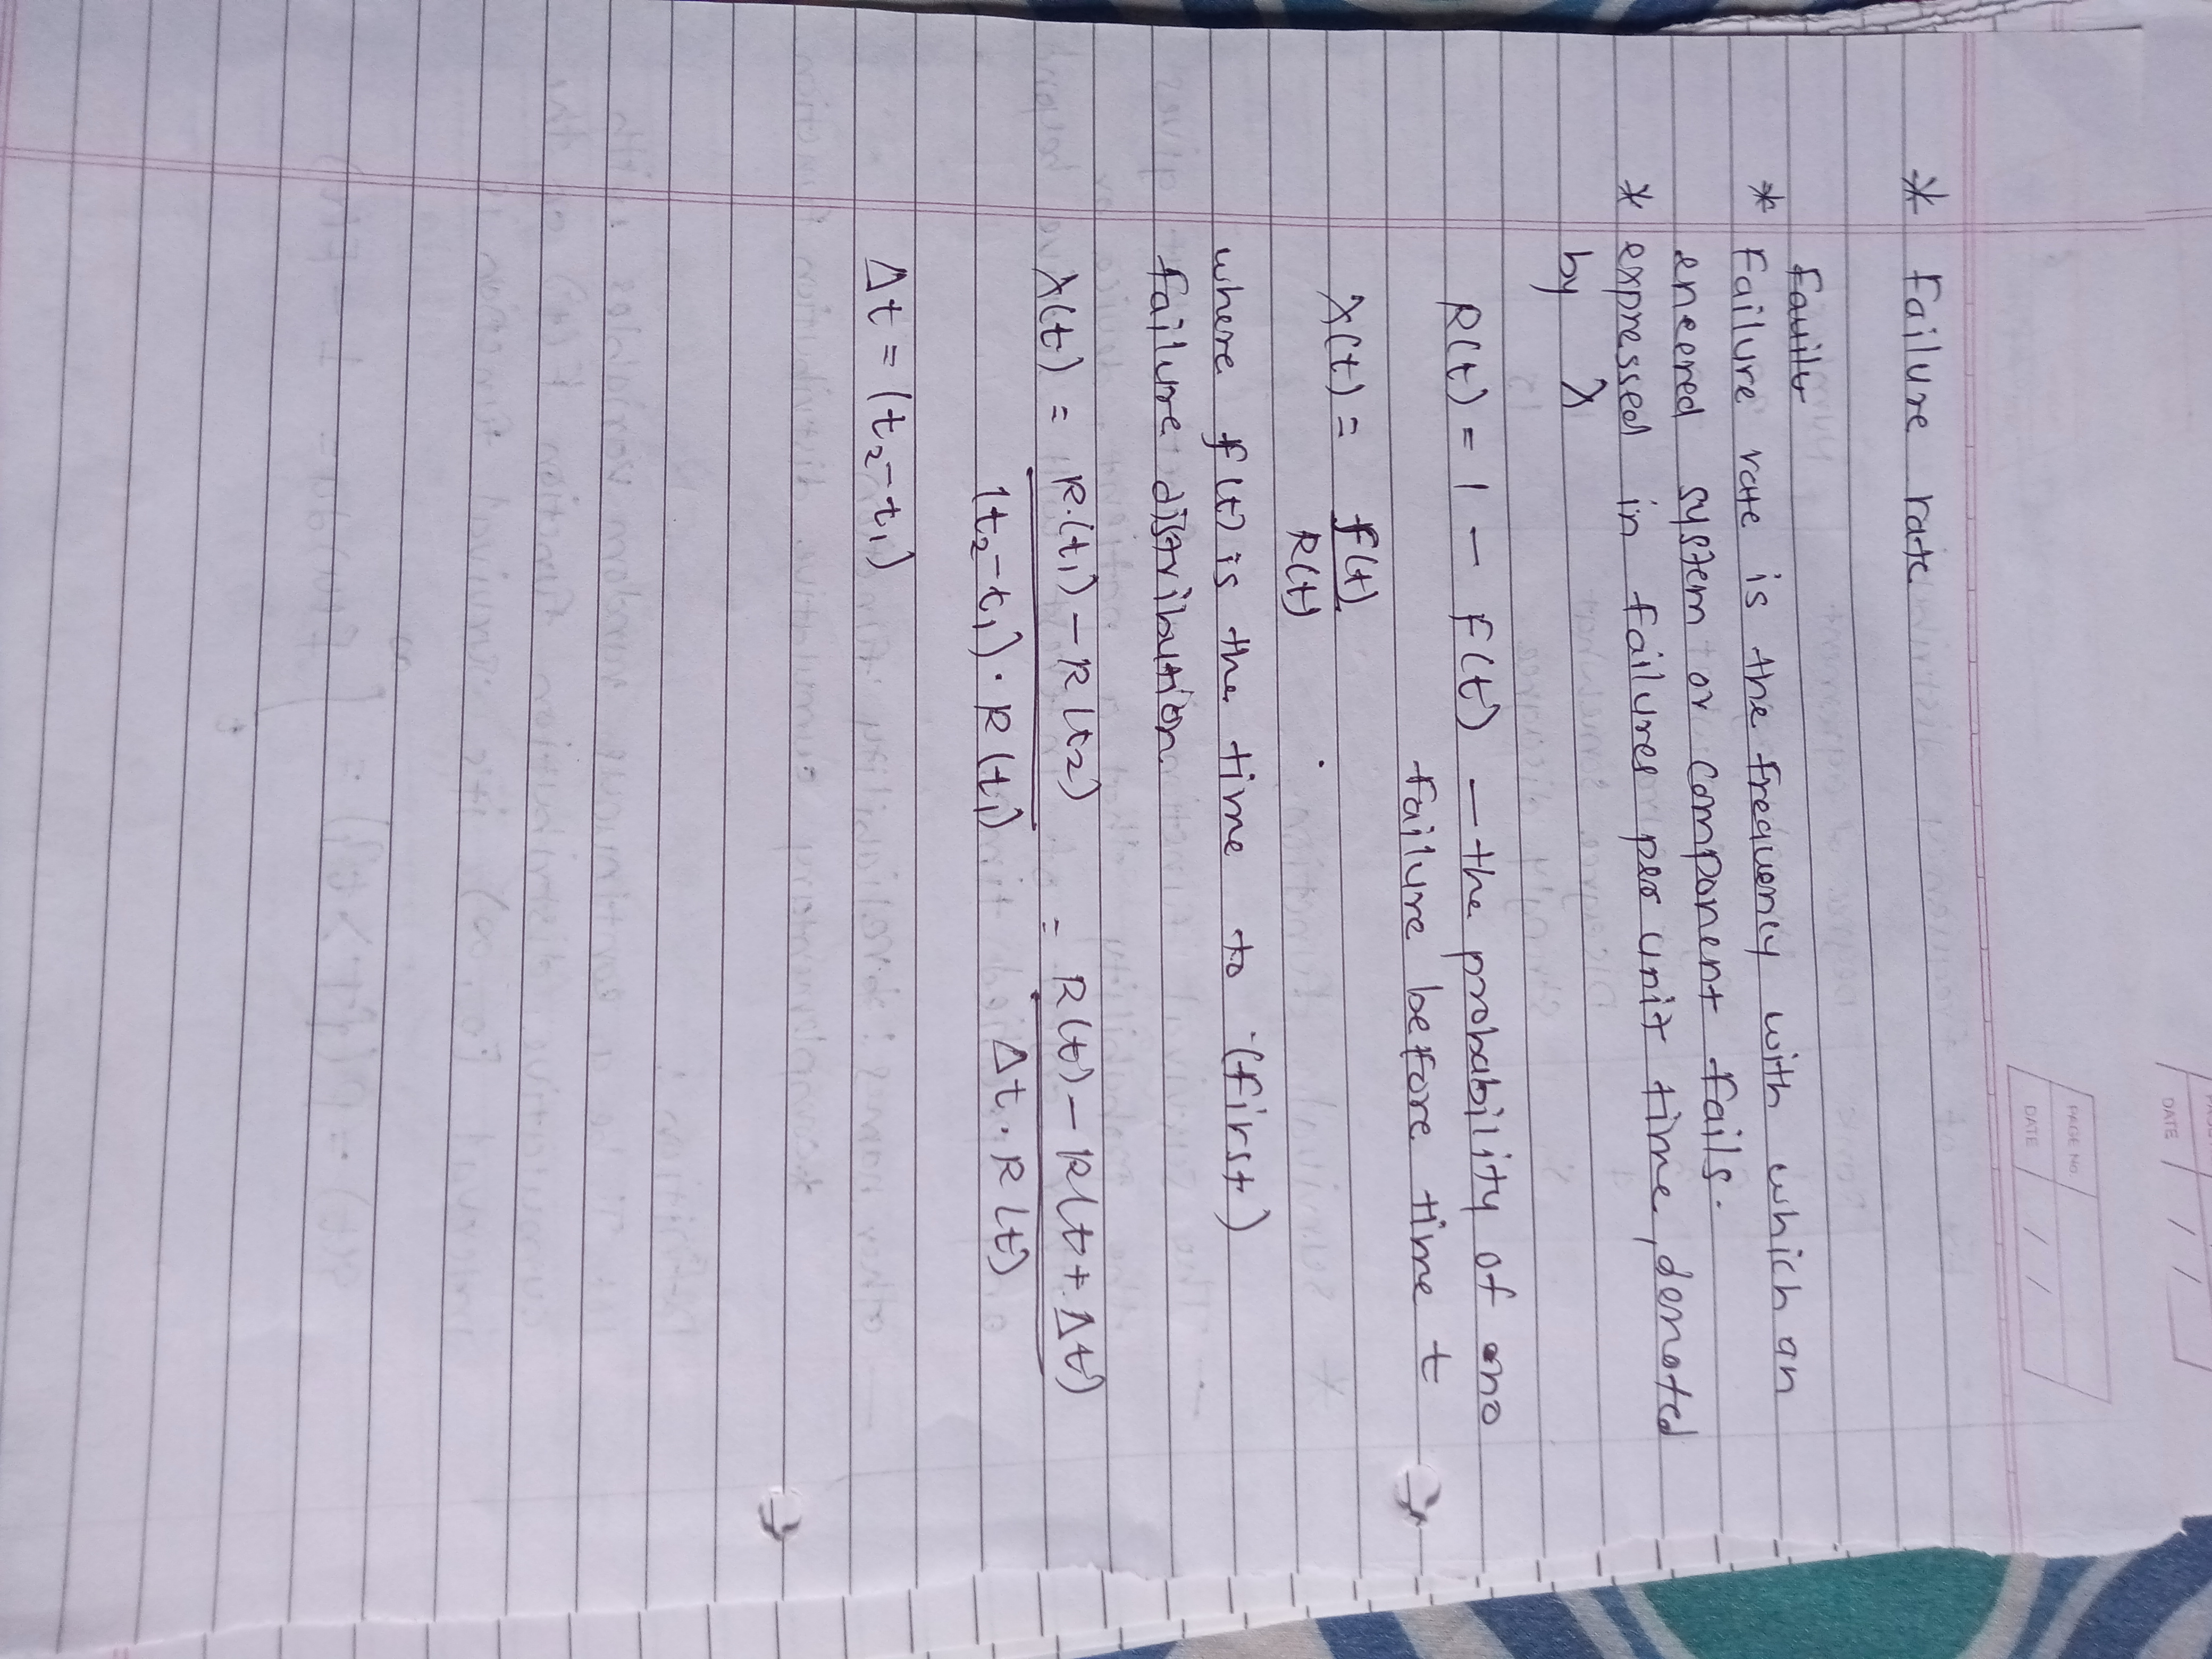 DATE / /
PAGE No.
DATE / /
* Failure rate
* Failure rate is the frequency with which an
eneered system or component fails.
* expressed in failures per unit time, denoted
by λ
R(t) = 1 - F(t) - the probability of no
failure before time t
λ(t) = f(t)
R(t)
where f(t) is the time to (first)
failure distribution.
λ(t) = R.(t₁) - R(t₂) = R(t) - R(t + Δt)
(t₂-t₁) . R(t₁) Δt . R(t)
Δt = (t₂-t₁)